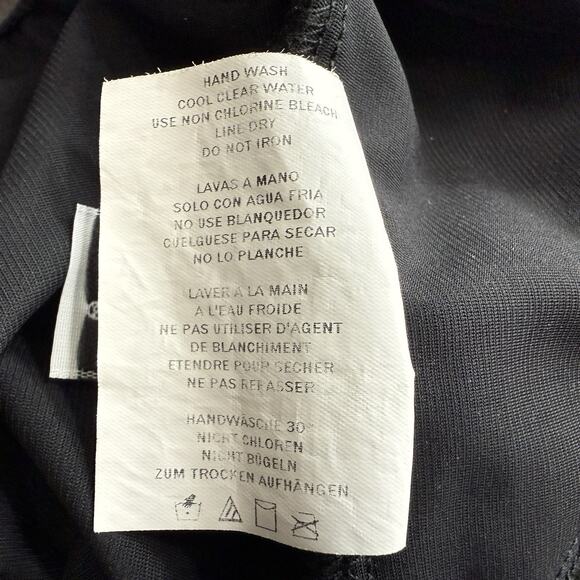 HAND WASH
COOL CLEAR WATER
USE NON CHLORINE BLEACH
LINE DRY
DO NOT IRON
LAVAS A MANO
SOLO CON AGUA FRIA
NO USE BLANQUEDOR
CUELGUESE PARA SECAR
NO LO PLANCHE
LAVER A LA MAIN
A L'EAU FROIDE
NE PAS UTILISER D'AGENT
DE BLANCHIMENT
ETENDRE POUR SECHER
NE PAS REPASSER
HANDWÄSCHE 30°
NICHT CHLOREN
NICHT BÜGELN
ZUM TROCKEN AUFHÄNGEN
®